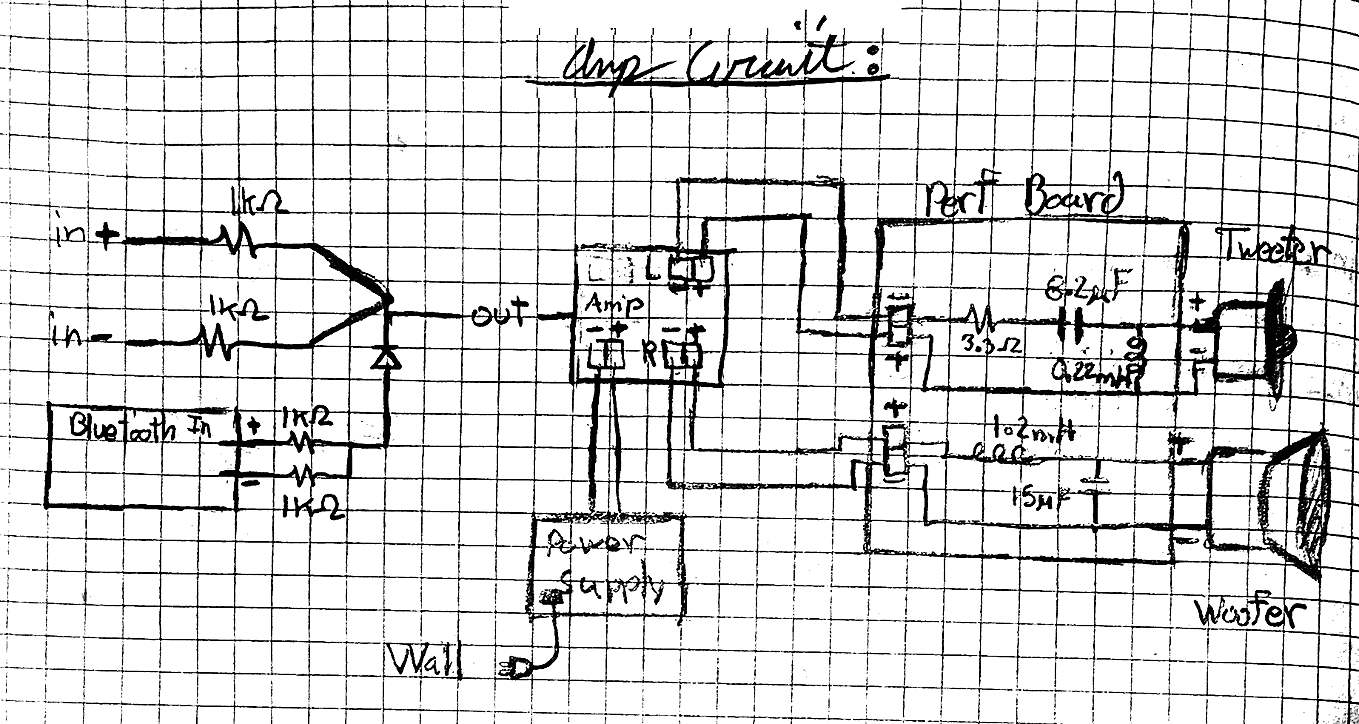 Amp Circuit:
in +
1kΩ
in -
1kΩ
Bluetooth In
+
1kΩ
-
1kΩ
out
L
- +
Amp
- +
R
- +
Power
Supply
Wall
Perf Board
-
+
3.3Ω
6.2μF
0.22mH
+
-
Tweeter
+
-
1.2mH
15μF
+
-
Woofer